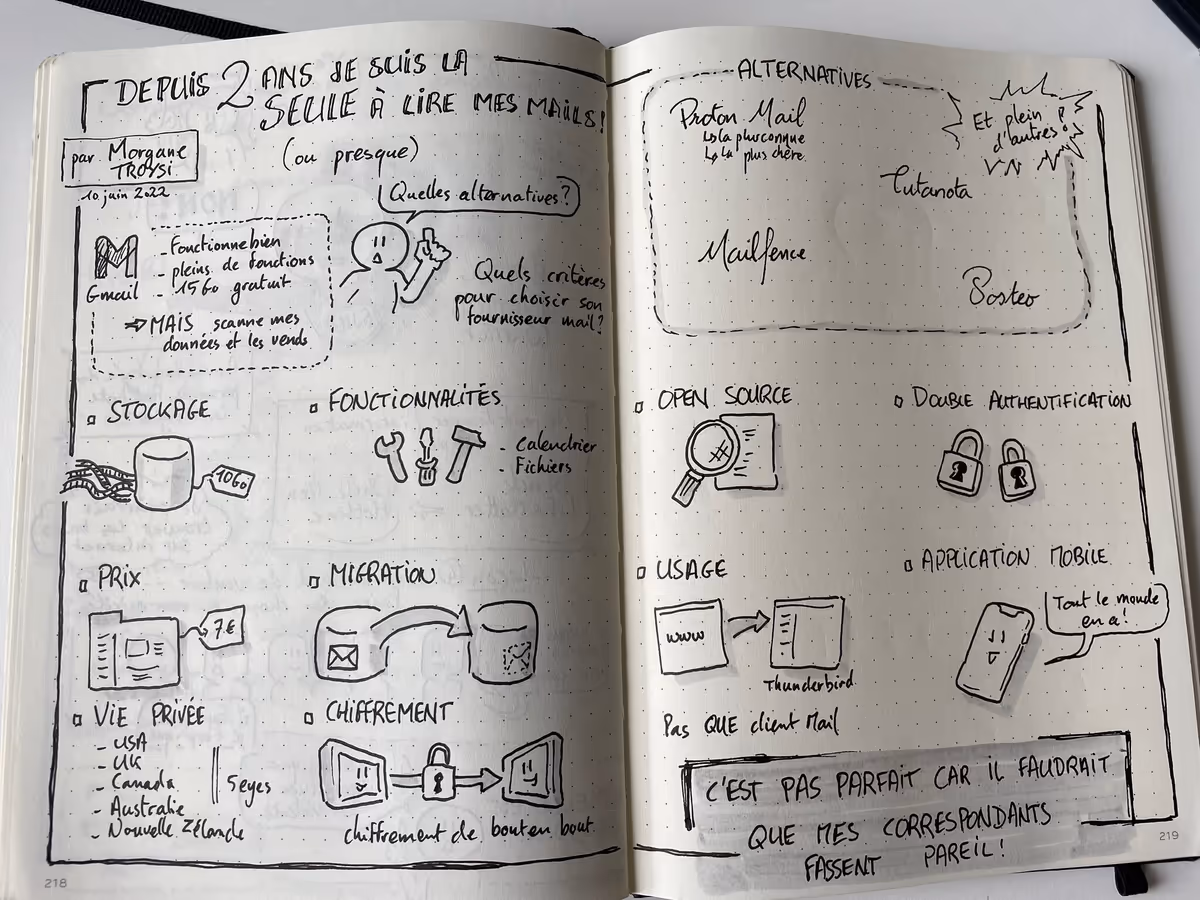 DEPUIS 2 ANS JE SUIS LA
SEULE À LIRE MES MAILS!
(ou presque)
par Morgane
TROYSI
10 juin 2022
Quelles alternatives?
M
Gmail
- Fonctionne bien
- pleins de fonctions
- 15Go gratuit
⇒ MAIS scanne mes
données et les vends.
Quels critères
pour choisir son
fournisseur mail?
STOCKAGE
10Go
FONCTIONNALITÉS
- Calendrier
- Fichiers
PRIX
7€
MIGRATION
VIE PRIVÉE
- USA
- UK
- Canada
- Australie
- Nouvelle Zélande
5 eyes
CHIFFREMENT
chiffrement de bout en bout.
218
ALTERNATIVES
Proton Mail
↳ la plus connue
↳ la plus chère.
Et plein
d'autres!
Tutanota
Mailfence
Posteo
OPEN SOURCE
DOUBLE AUTHENTIFICATION
USAGE
www
Thunderbird
Pas QUE client Mail
APPLICATION MOBILE
Tout le monde
en a!
C'EST PAS PARFAIT CAR IL FAUDRAIT
QUE MES CORRESPONDANTS
FASSENT PAREIL!
219